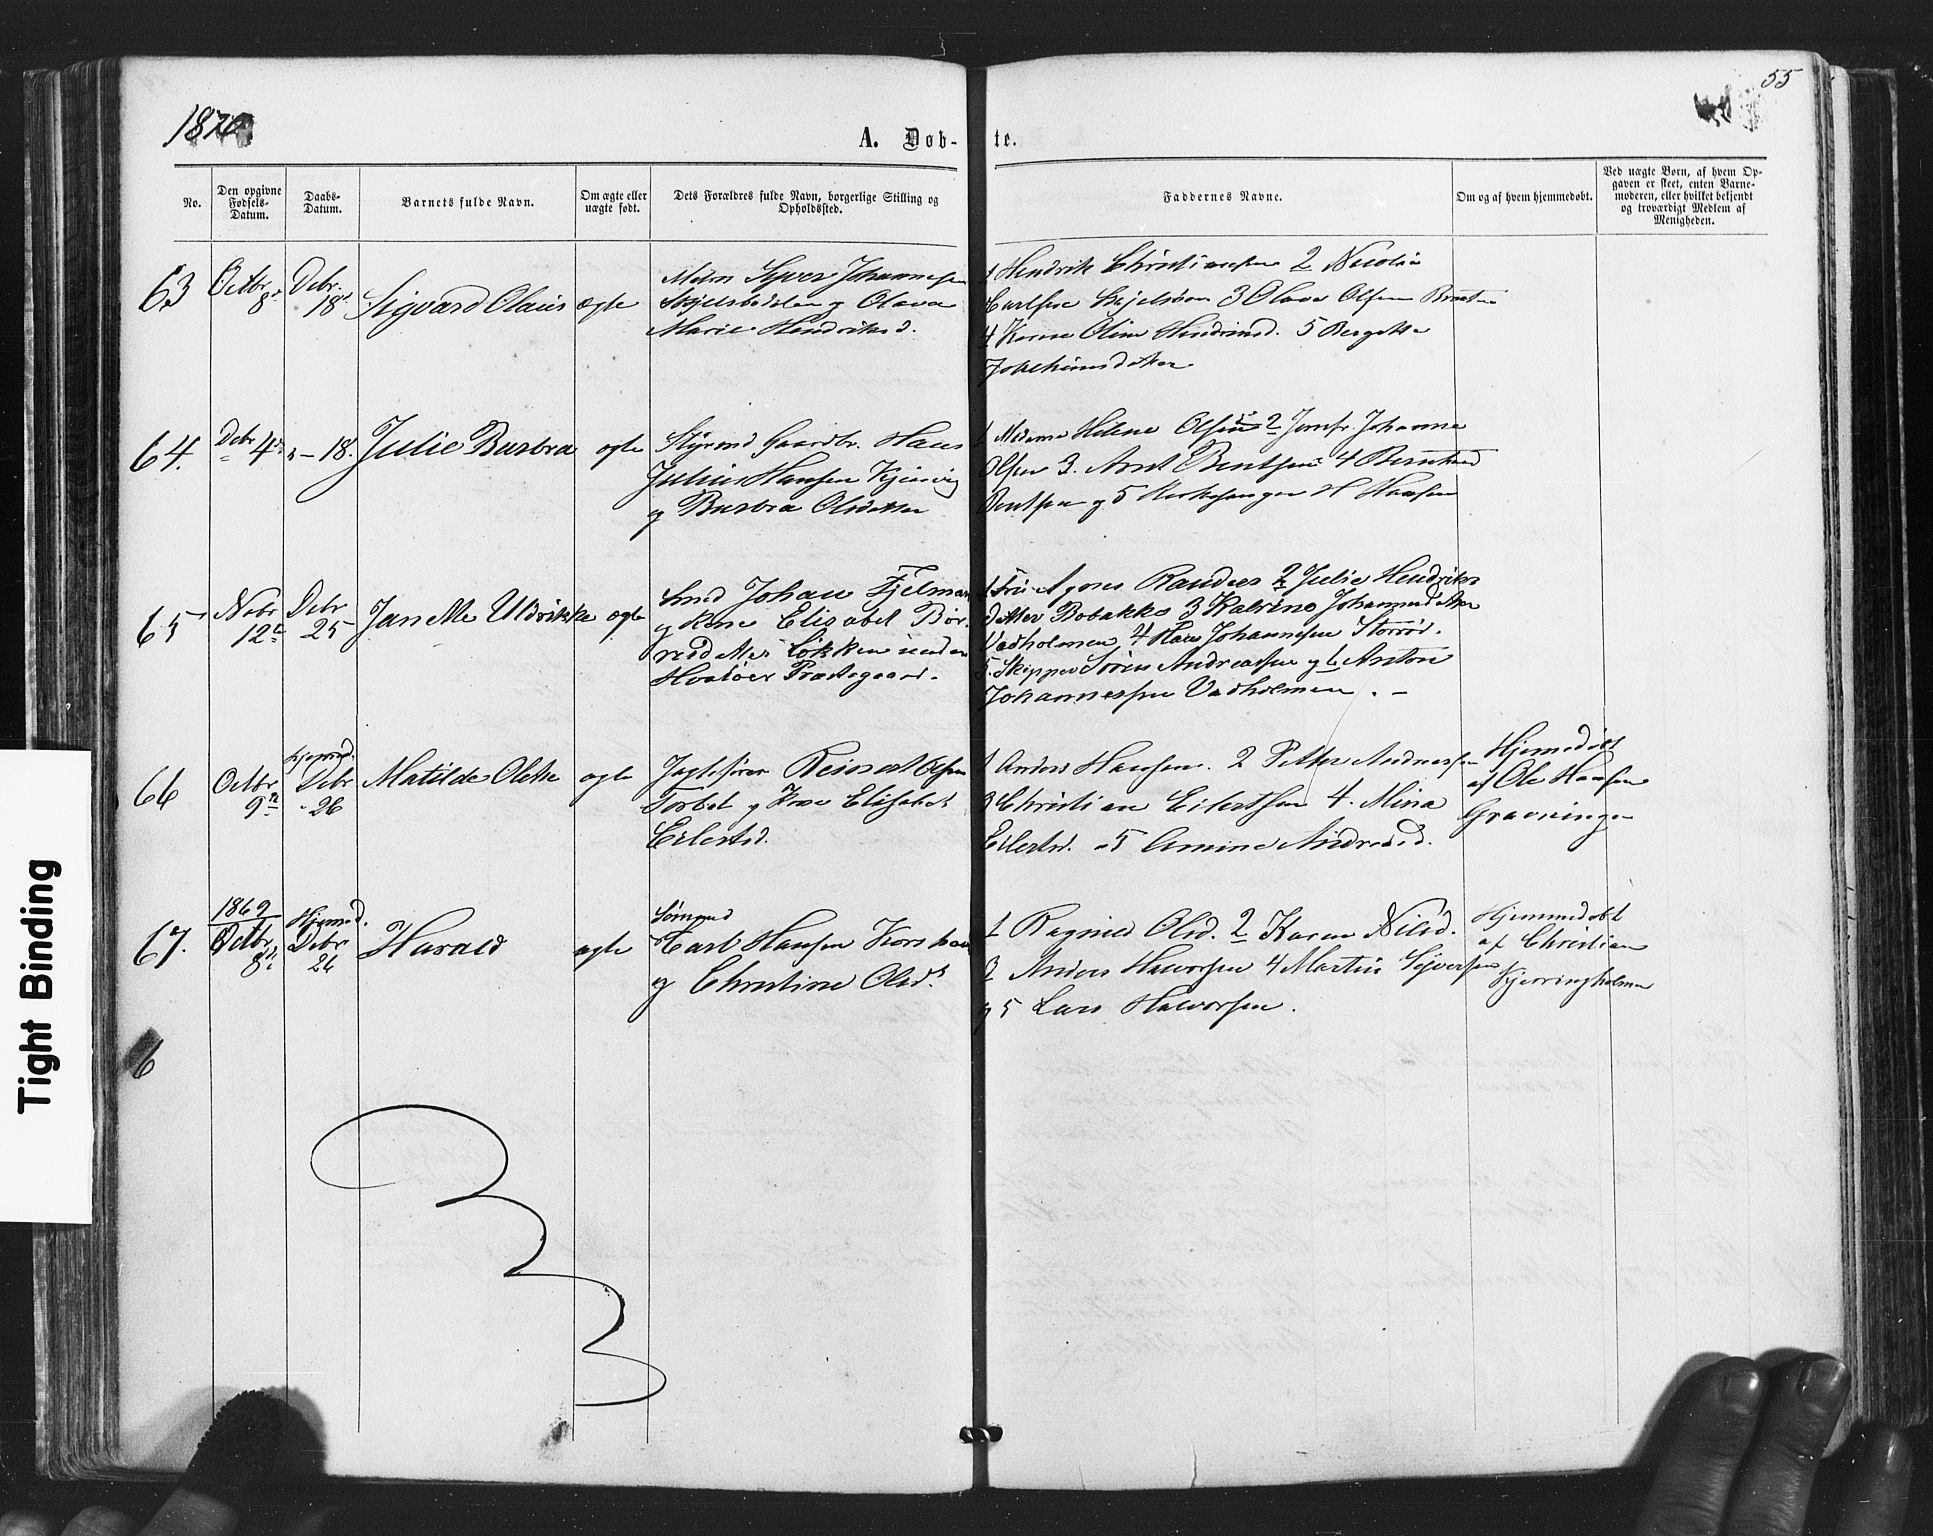 55
1870
A. Døb-te.
No.
Den opgivne Fødsels-Datum.
Daabs-Datum.
Barnets fulde Navn.
Om ægte eller uægte født.
Dets Forældres fulde Navn, borgerlige Stilling og Opholdssted.
Faddernes Navne.
Om og af hvem hjemmedøbt.
Ved uægte Børn, af hvem Op-
gaven er skeet, enten Barne-
moderen, eller hvilket bekjendt
og troværdigt Medlem af
Menigheden.
63
Octbr 8de
Debr. 18de
Sigvard Olaus
ægte
Johannesen
og Olava
Marie Hendriksd.
1 Hendrik Christiansen 2 Nicolai
Carlsen 3 Olava Olsen
4 Karen Oline Hendriksd. 5 Bergette
Jokchimsdatter
64.
Debr 4de
" - 18.
Julie Barbra
ægte
Styrmd Gaardbr. Hans
Julius Hansen
og Barbra Olsdatter
1 Madame Helene Olsen 2 Jomfr. Johanna
Olsen 3. Arnt Bentsen 4 Berntine
Bentsen og 5 Kirkesanger H Hansen
65
Nobr 12te
Debr 25
Janette Uldrikke
ægte
Smed Johan Fjelman
og Kone Elisabet Bor-
redatter Løkken under
Hvaløer Præstegaard.
1 Agnes Randers 2 Julie Hendriks
datter Bobakke 3 Katrine Johannesdatter
Vadholmen 4 Hans Johannesen Storrød.
5. Skipper Søren Andreassen og 6 Anton
Johannessen Vadholmen. -
66
Octbr 9de
Hjemmed.
Debr 26
Matilde Olette
ægte
Jagtfører Reinert Olsen
og Kone Elisabet
Eilertsd.
1 Anders Hansen. 2 Petter Andreassen
3 Christian Eilertsen 4. Mina
Eilertsd. 5 Amine Andreasd.
Hjemmedøbt
af Ole Hansen
Gravningen
67.
1869
Octbr 8de
Hjemmed.
Debr 26
Harald
ægte
Sømand
Carl Hansen Korshavn
og Christine Olsd.
1 Ragnild Olsd. 2 Karen Nilsd.
3 Anders Halvorsen 4 Martin Syversen
og 5 Lars Halvorsen.
Hjemmedøbt
af Christian
Kjerringholmen
6
Tight Binding